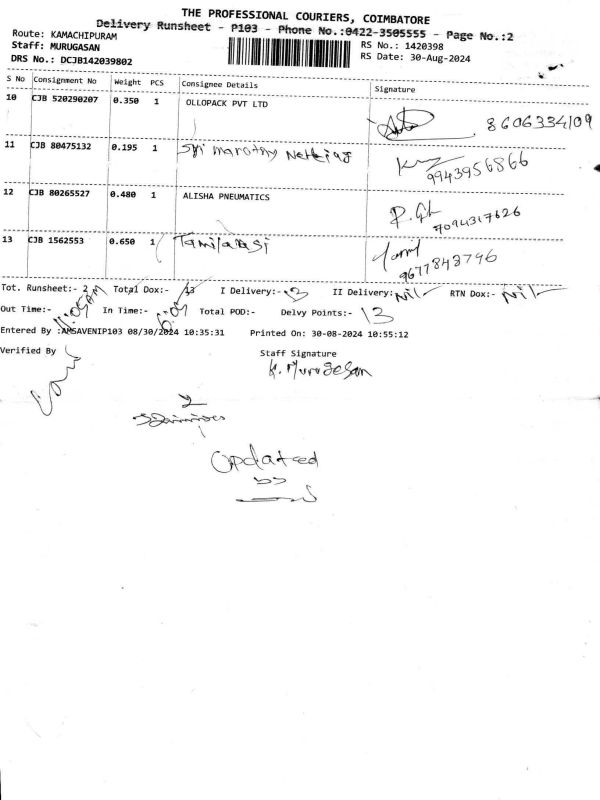 THE PROFESSIONAL COURIERS, COIMBATORE
Delivery Runsheet - P103 - Phone No.:0422-3505555 - Page No.:2
Route: KAMACHIPURAM
RS No.: 1420398
Staff: MURUGASAN
RS Date: 30-Aug-2024
DRS No.: DCJB142039802
S No Consignment No Weight PCS Consignee Details Signature
10 CJB 520290207 0.350 1 OLLOPACK PVT LTD
8606334109
11 CJB 80475132 0.195 1 Sri maruthy Netting
9943956866
12 CJB 80265527 0.480 1 ALISHA PNEUMATICS
7094317626
13 CJB 1562553 0.650 1 Tamilarasi
Tamil
9677843796
Tot. Runsheet:- 2 Total Dox:- 13 I Delivery:- 13 II Delivery: Nil RTN Dox:- Nil
Out Time:- 11:05AM In Time:- 6:05 Total POD:- Delvy Points:- 13
Entered By :AMSAVENIP103 08/30/2024 10:35:31 Printed On: 30-08-2024 10:55:12
Verified By Staff Signature
K. Murugesan
Updated
by